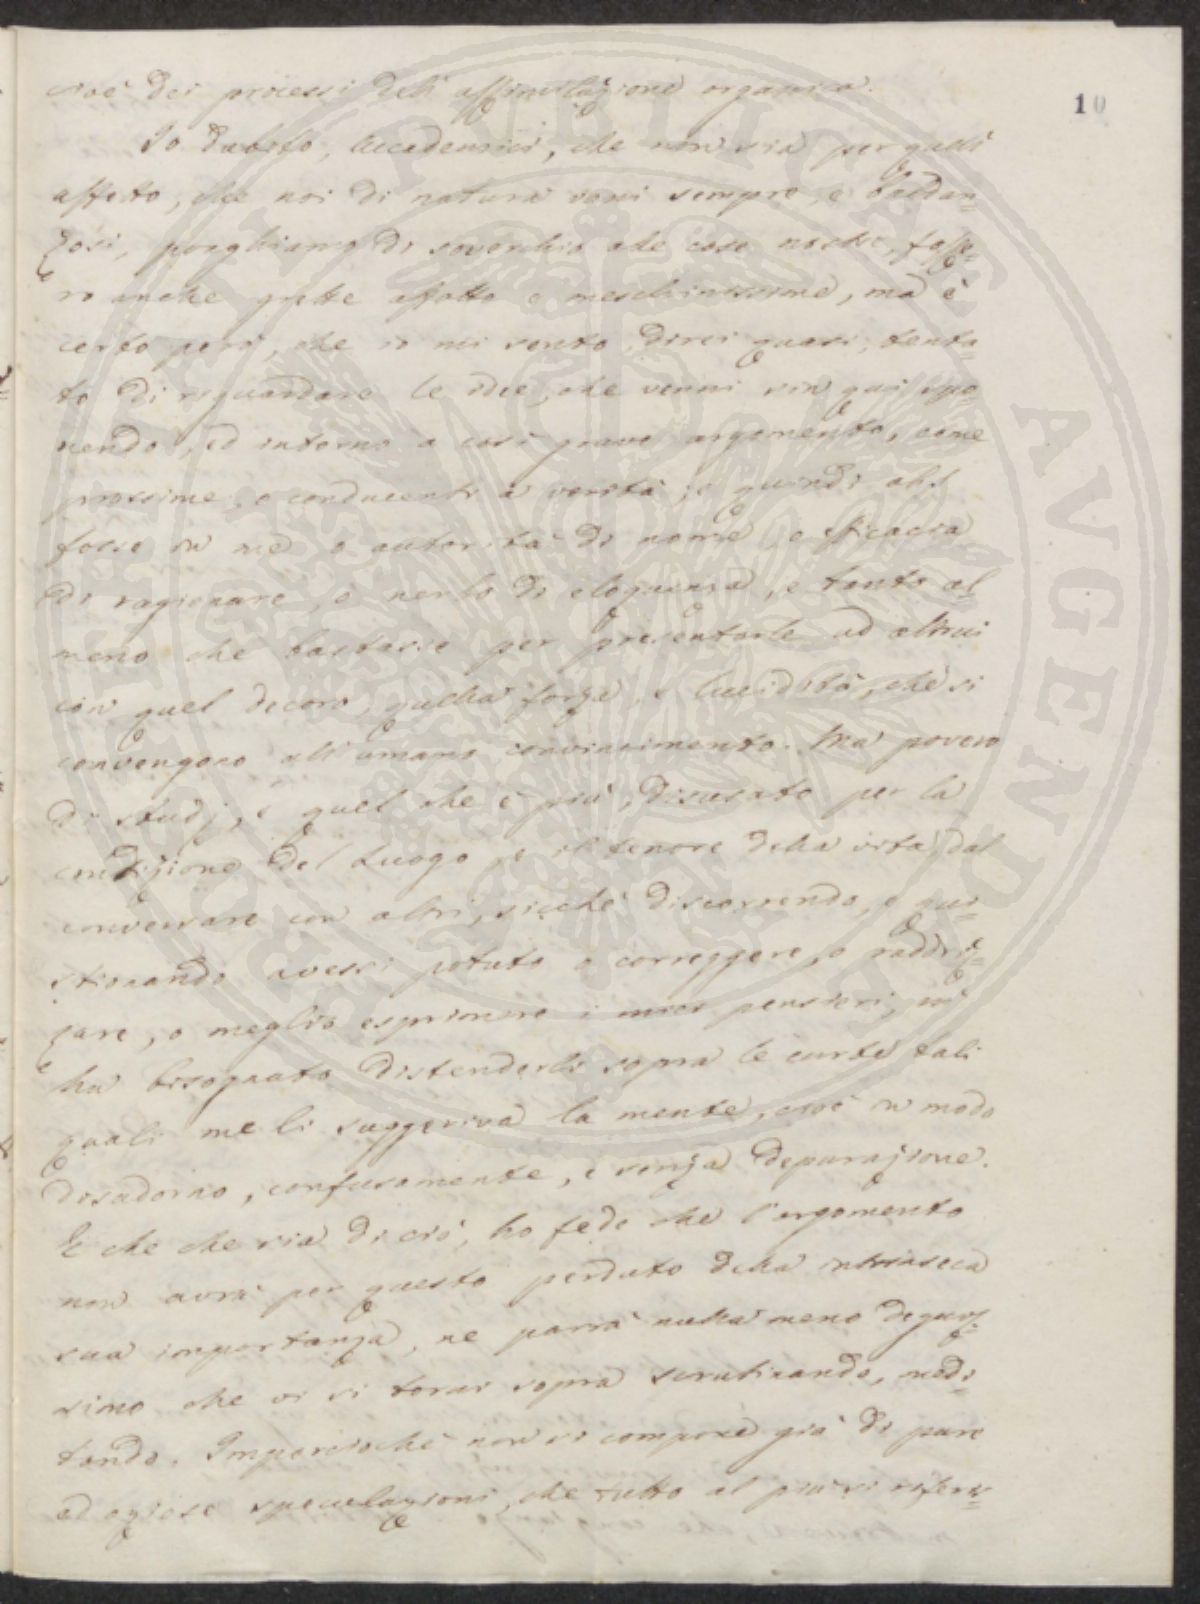 10
cioè dei processi dell'assimilazione organica.
Io dubito, Accademici, che non sia per quell'
affetto, che noi di natura vani sempre, e baldan=
zosi, porghiamo di soverchio alle cose nostre, fosse=
ro anche grette affatto e meschinissime, ma è
certo però, che io mi sento, direi quasi, tenta=
to di riguardare le idee, che venni sin qui espo=
nendo, ed intorno a così grave argomento, come
prossime, o conducenti a verità; e quindi ah!
fosse in me o autorità di nome, e efficacia
di ragionare, o nerbo di eloquenza, e tanto al=
meno che bastasse per presentarle ad altrui
con quel decoro, quella forza, e lucidità, che si
convengono all'umano convincimento. Ma povero
di studj, e quel che è più, disusato per la
condizione del Luogo, e il tenore della vita, dal
conversare con altri, sicchè discorrendo, e qui=
stionando avessi potuto o correggere, o raddriz=
zare, o meglio esprimere i miei pensieri, mi
ha bisognato distenderli sopra le carte tali
quali me li suggeriva la mente, cioè in modo
disadorno, confusamente, e senza depurazione.
E che che sia di ciò, ho fede che l'argomento
non avrà per questo perduto della intrinseca
sua importanza, ne parrà nulla meno degnis=
simo che vi si torni sopra scrutinando, medi=
tando. Imperciochè non si compone già di pure
ed oziose speculazioni, che tutto al più si riferis=